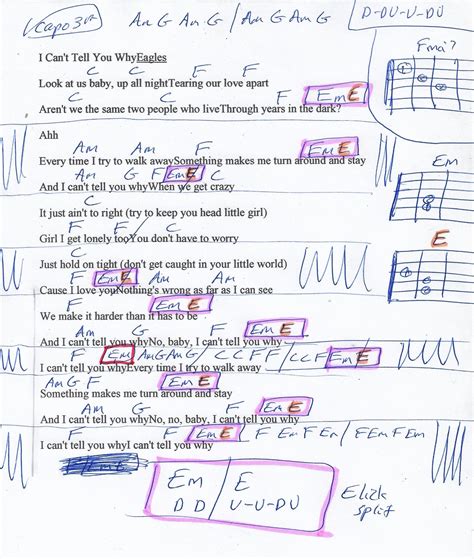 Capo 3rd Am G Am G / Am G Am G D-DU-U-DU
Fmaj?
I Can't Tell You WhyEagles
C C F F
Look at us baby, up all nightTearing our love apart
C C F F Em E
Aren't we the same two people who liveThrough years in the dark?
Ahh
Am Am F F Em E
Every time I try to walk awaySomething makes me turn around and stay
Em
Am G F Em E C
And I can't tell you whyWhen we get crazy
C
It just ain't to right (try to keep you head little girl)
F F
Girl I get lonely tooYou don't have to worry
E
C C
Just hold on tight (don't get caught in your little world)
F Em E Am Am
Cause I love youNothing's wrong as far as I can see
F F Em E
We make it harder than it has to be
Am G F Em E
And I can't tell you whyNo, baby, I can't tell you why
F Em Am G Am G / C C F F / C C F F Em E
I can't tell you whyEvery time I try to walk away
Am G F Em E
Something makes me turn around and stay
Am G F Em E
And I can't tell you whyNo, no, baby, I can't tell you why
F F Em E / F Em F Em / F Em F Em
I can't tell you whyI can't tell you why
Em / E
D D / U-U-DU
E
split